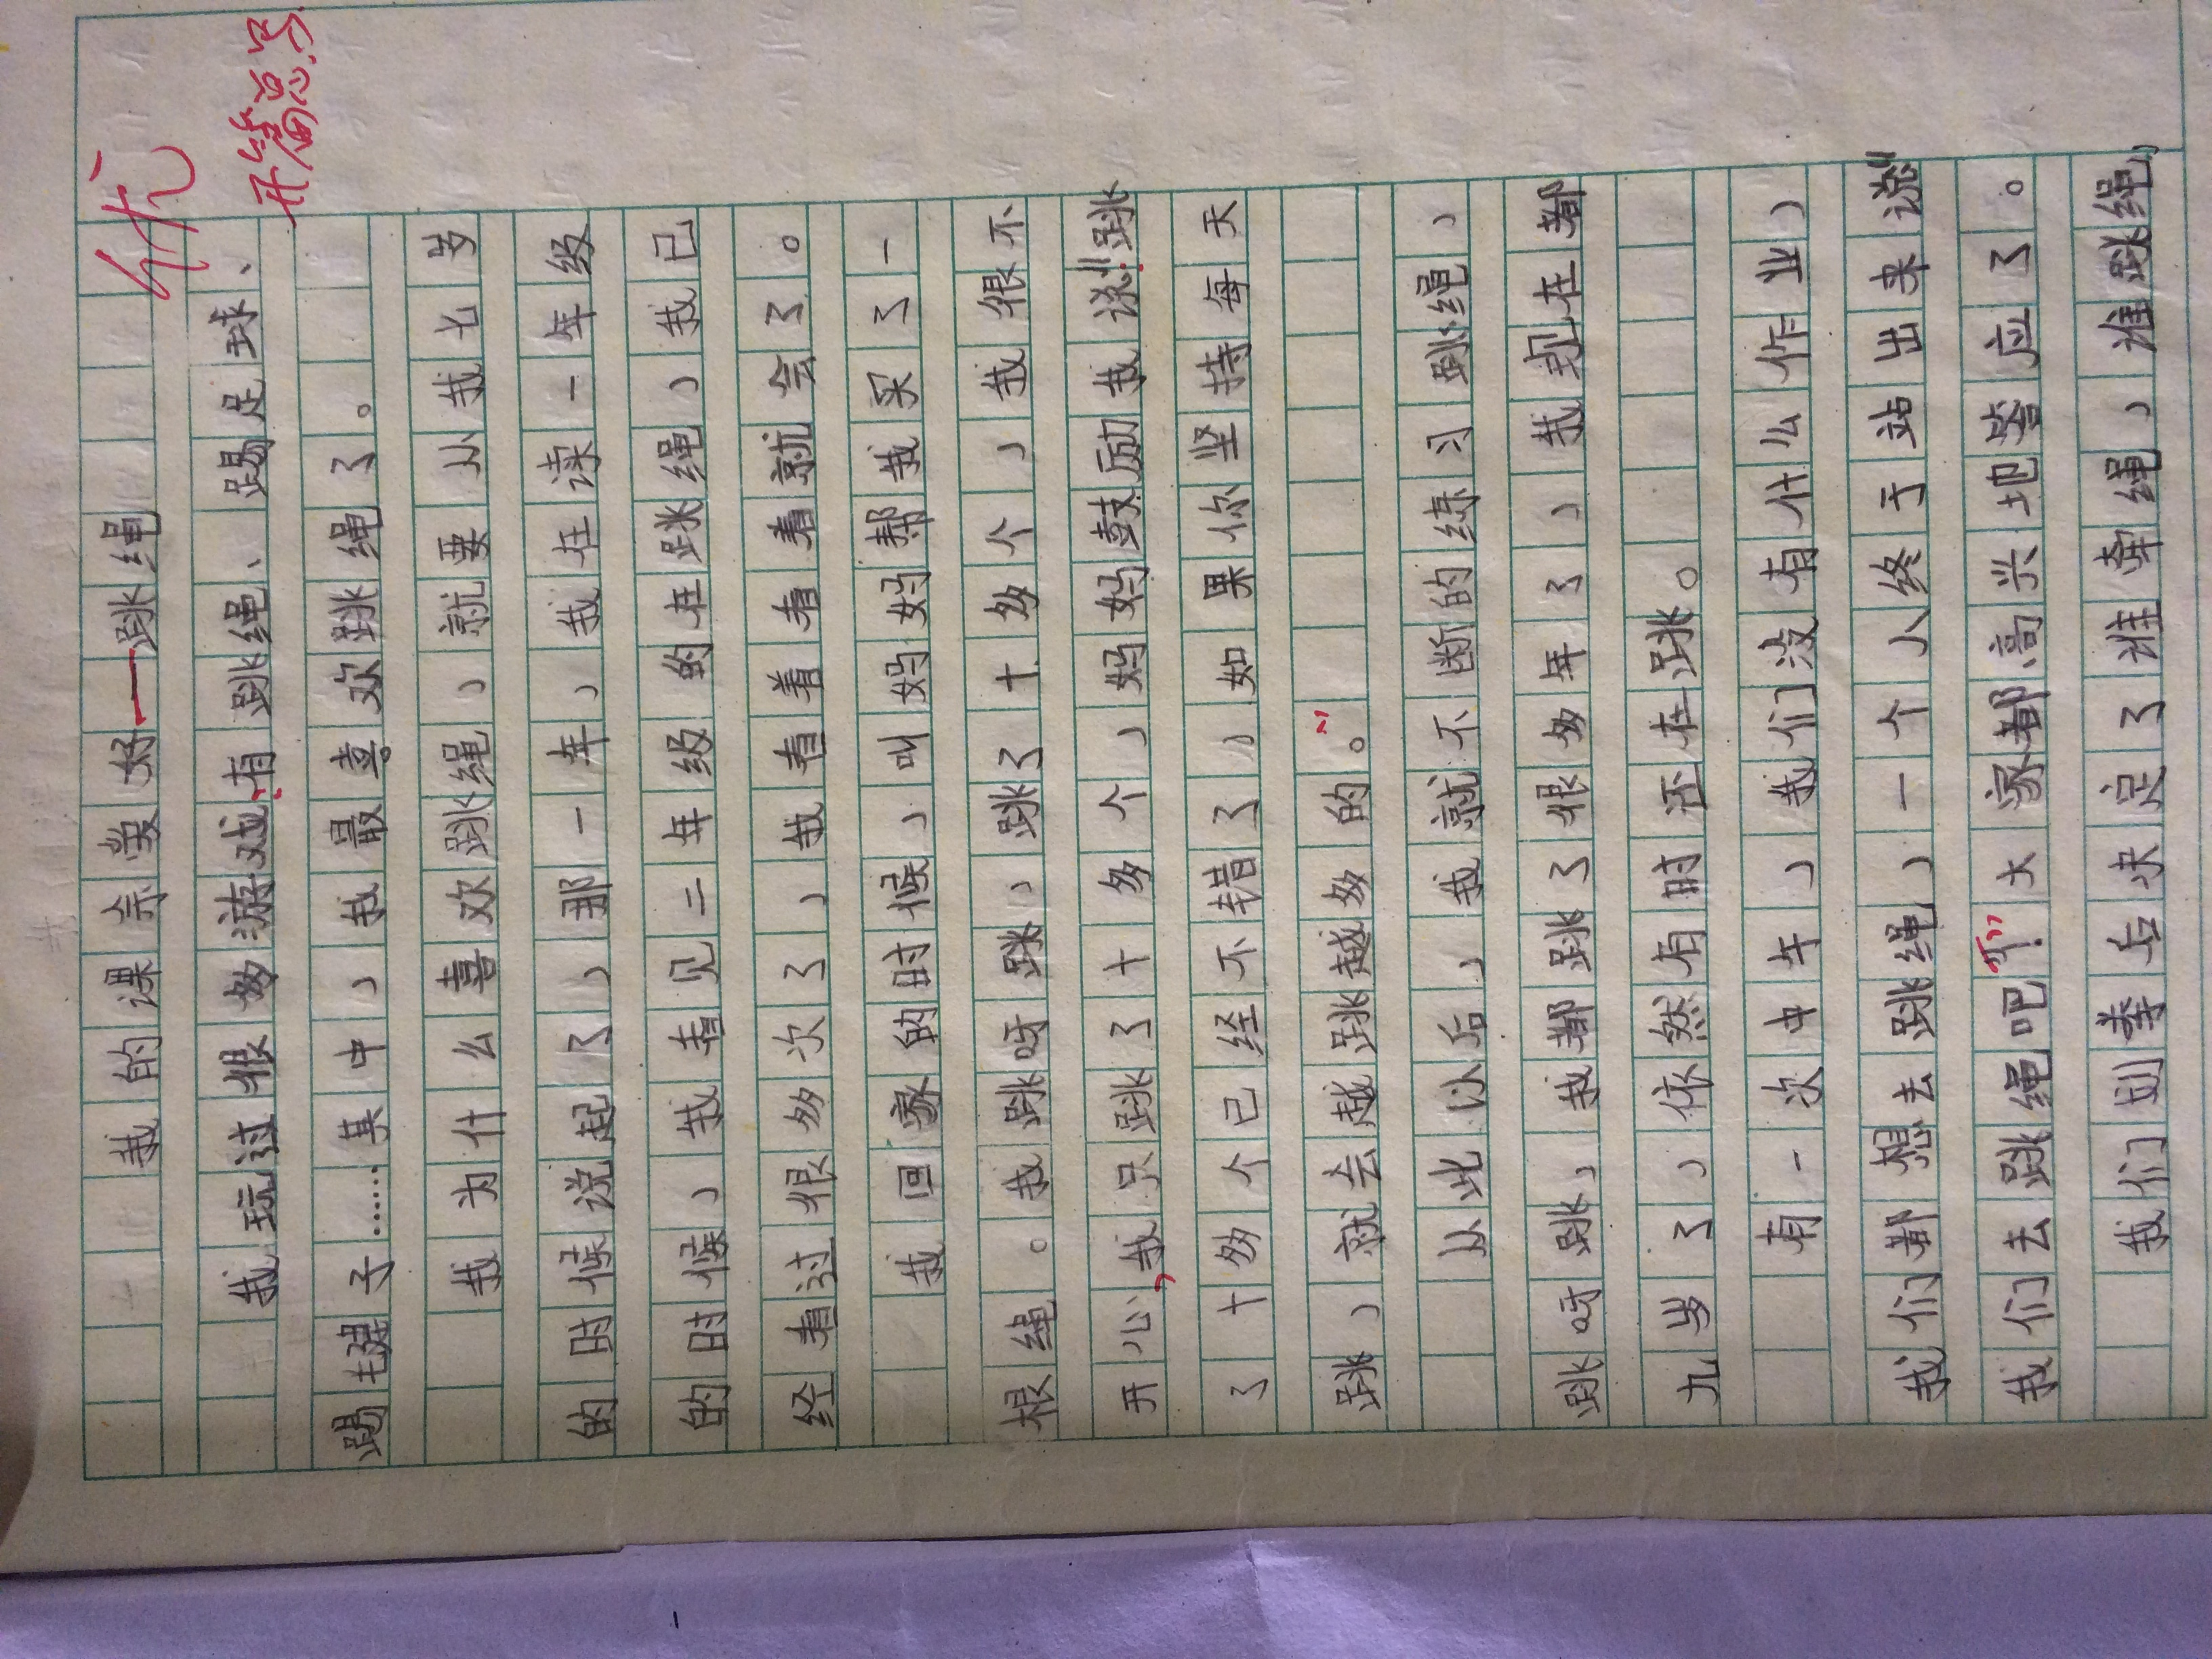 优
我的课余爱好—跳绳
开篇点题
我玩过很多游戏,有跳绳、踢足球、
踢毽子……其中，我最喜欢跳绳了。
我为什么喜欢跳绳，就要从我七岁
的时候说起了，那一年，我在读一年级
的时候，我看见二年级的在跳绳，我已
经看过很多次了，我看着看着就会了。
我回家的时候，叫妈妈帮我买了一
根绳。我跳呀跳，跳了十多个，我很不
开心,我只跳了十多个，妈妈鼓励我说:“跳
了十多个已经不错了，如果你坚持每天
跳，就会越跳越多的。”
从此以后，我就不断的练习跳绳，
跳呀跳，我都跳了很多年了，我现在都
九岁了，依然有时还在跳。
有一次中午，我们没有什么作业，
我们都想去跳绳，一个人终于站出来说“
我们去跳绳吧!”大家都高兴地答应了。
我们划拳后决定了谁牵绳，谁跳绳，